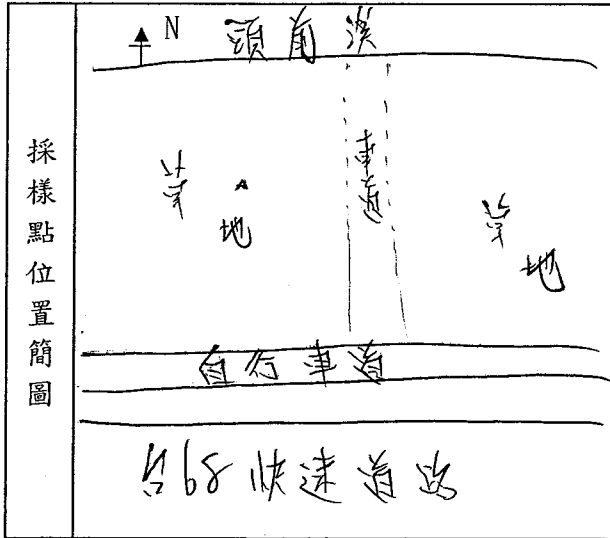 採樣點位置簡圖
N
頭前溪
車道
草地
草地
自行車道
台68快速道路